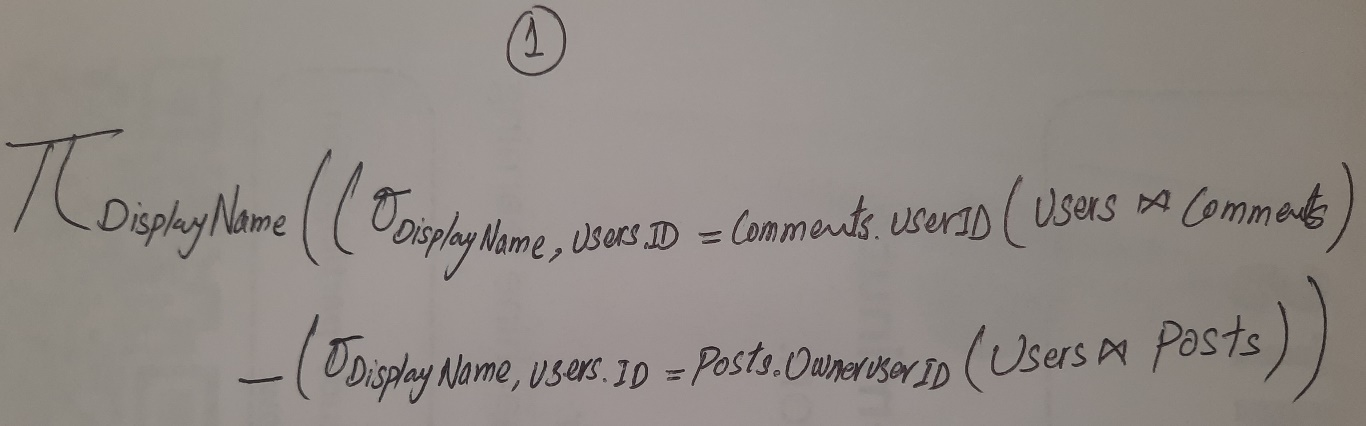 ①
π DisplayName ( ( σ DisplayName, Users.ID = Comments.UserID ( Users ⋈ Comments )
— ( σ DisplayName, Users.ID = Posts.OwnerUserID ( Users ⋈ Posts ) )